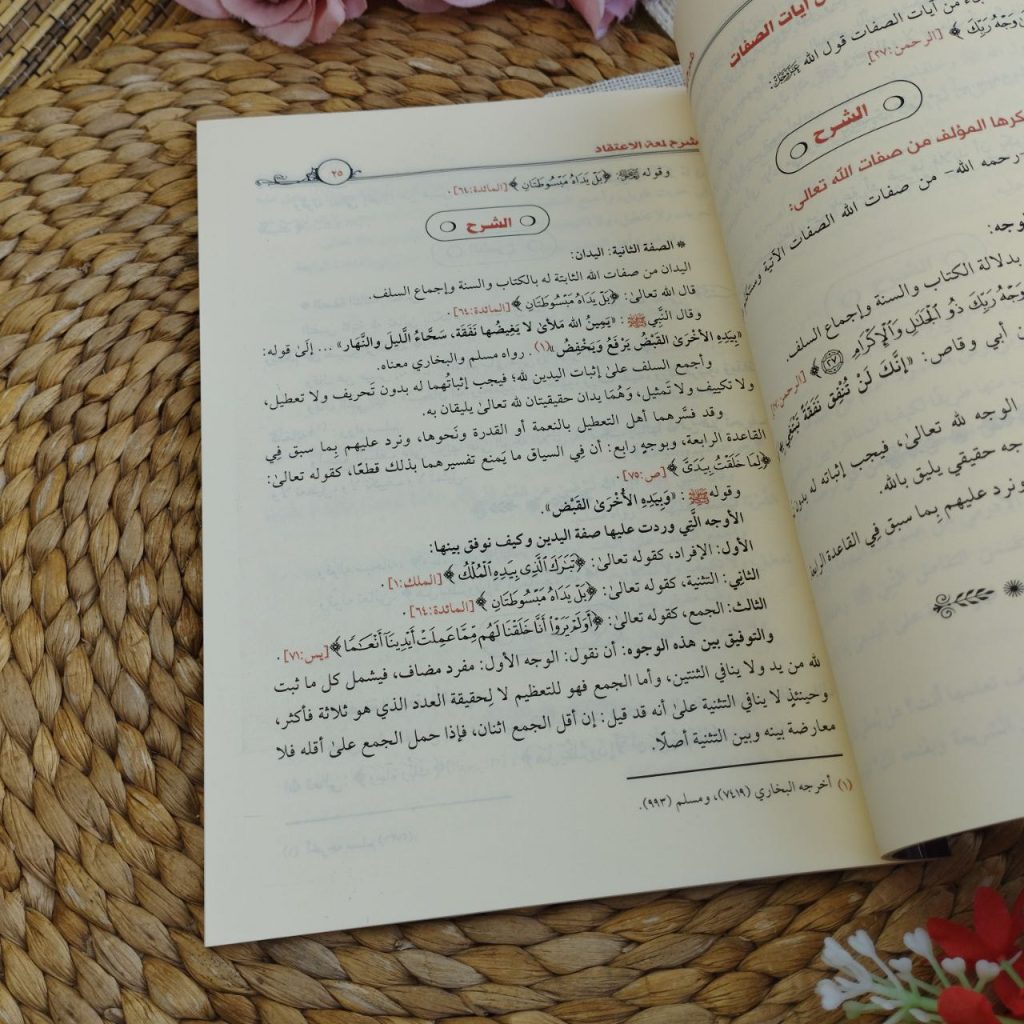 ن آيات الصفات
من آيات الصفات قول الله عز وجل:
وَجْهُ رَبِّكَ ﴾ [الرحمن:٢٧].
الشرح
كرها المؤلف من صفات الله تعالى:
رحمه الله- من صفات الله الصفات الآتية
وجه:
بدلالة الكتاب والسنة وإجماع السلف.
وَجْهُ رَبِّكَ ذُو ٱلْجَلَٰلِ وَٱلْإِكْرَامِ ۝٢٧﴾ [الرحمن:
ن أبي وقاص: «إِنَّكَ لَنْ تُنْفِقَ نَفَقَةً
الوجه لله تعالىٰ، فيجب إثباته له بدون
جه حقيقي يليق بالله.
ونرد عليهم بِما سبق فِي القاعدة الرابعة
شرح لمعة الاعتقاد
٢٥
وقوله ﷻ: ﴿بَلْ يَدَاهُ مَبْسُوطَتَانِ﴾ [المائدة:٦٤].
الشرح
* الصفة الثانية: اليدان:
اليدان من صفات الله الثابتة له بالكتاب والسنة وإجماع السلف.
قال الله تعالىٰ: ﴿بَلْ يَدَاهُ مَبْسُوطَتَانِ﴾ [المائدة:٦٤].
وقال النَّبِي ﷺ: «يَمِينُ الله مَلأىٰ لا يَغِيضُها نَفَقَة، سَحَّاءُ اللَّيلَ والنَّهار» ... إلَىٰ قوله:
«بِيَدِهِ الأخْرَىٰ القَبْضُ يَرْفَعُ وَيَخْفِضُ»(١). رواه مسلم والبخاري معناه.
وأجمع السلف علىٰ إثبات اليدين لله؛ فيجب إثباتُهما له بدون تَحريف ولا تعطيل،
ولا تكييف ولا تَمثيل، وهُمَا يدان حقيقيتان لله تعالىٰ يليقان به.
وقد فسَّرهما أهل التعطيل بالنعمة أو القدرة ونَحوها، ونرد عليهم بِما سبق فِي
القاعدة الرابعة، وبوجهٍ رابع: أن فِي السياق ما يَمنع تفسيرهما بذلك قطعًا، كقوله تعالىٰ:
﴿لِمَا خَلَقْتُ بِيَدَيَّ﴾ [ص:٧٥].
وقوله ﷺ: «وَبِيَدِهِ الأُخْرَىٰ القَبْض».
الأوجه الَّتِي وردت عليها صفة اليدين وكيف نوفق بينها:
الأول: الإفراد، كقوله تعالىٰ: ﴿تَبَٰرَكَ ٱلَّذِى بِيَدِهِ ٱلْمُلْكُ﴾ [الملك:١].
الثانِي: التثنية، كقوله تعالىٰ: ﴿بَلْ يَدَاهُ مَبْسُوطَتَانِ﴾ [المائدة:٦٤].
الثالث: الجمع، كقوله تعالىٰ: ﴿أَوَلَمْ يَرَوْا۟ أَنَّا خَلَقْنَا لَهُم مِّمَّا عَمِلَتْ أَيْدِينَآ أَنْعَٰمًا﴾ [يس:٧١].
والتوفيق بين هذه الوجوه: أن نقول: الوجه الأول: مفرد مضاف، فيشمل كل ما ثبت
لله من يد ولا ينافي الثنتين، وأما الجمع فهو للتعظيم لا لِحقيقة العدد الذي هو ثلاثة فأكثر،
وحينئذٍ لا ينافي التثنية علىٰ أنه قد قيل: إن أقل الجمع اثنان، فإذا حمل الجمع علىٰ أقله فلا
معارضة بينه وبين التثنية أصلًا.
(١) أخرجه البخاري (٧٤١٩)، ومسلم (٩٩٣).